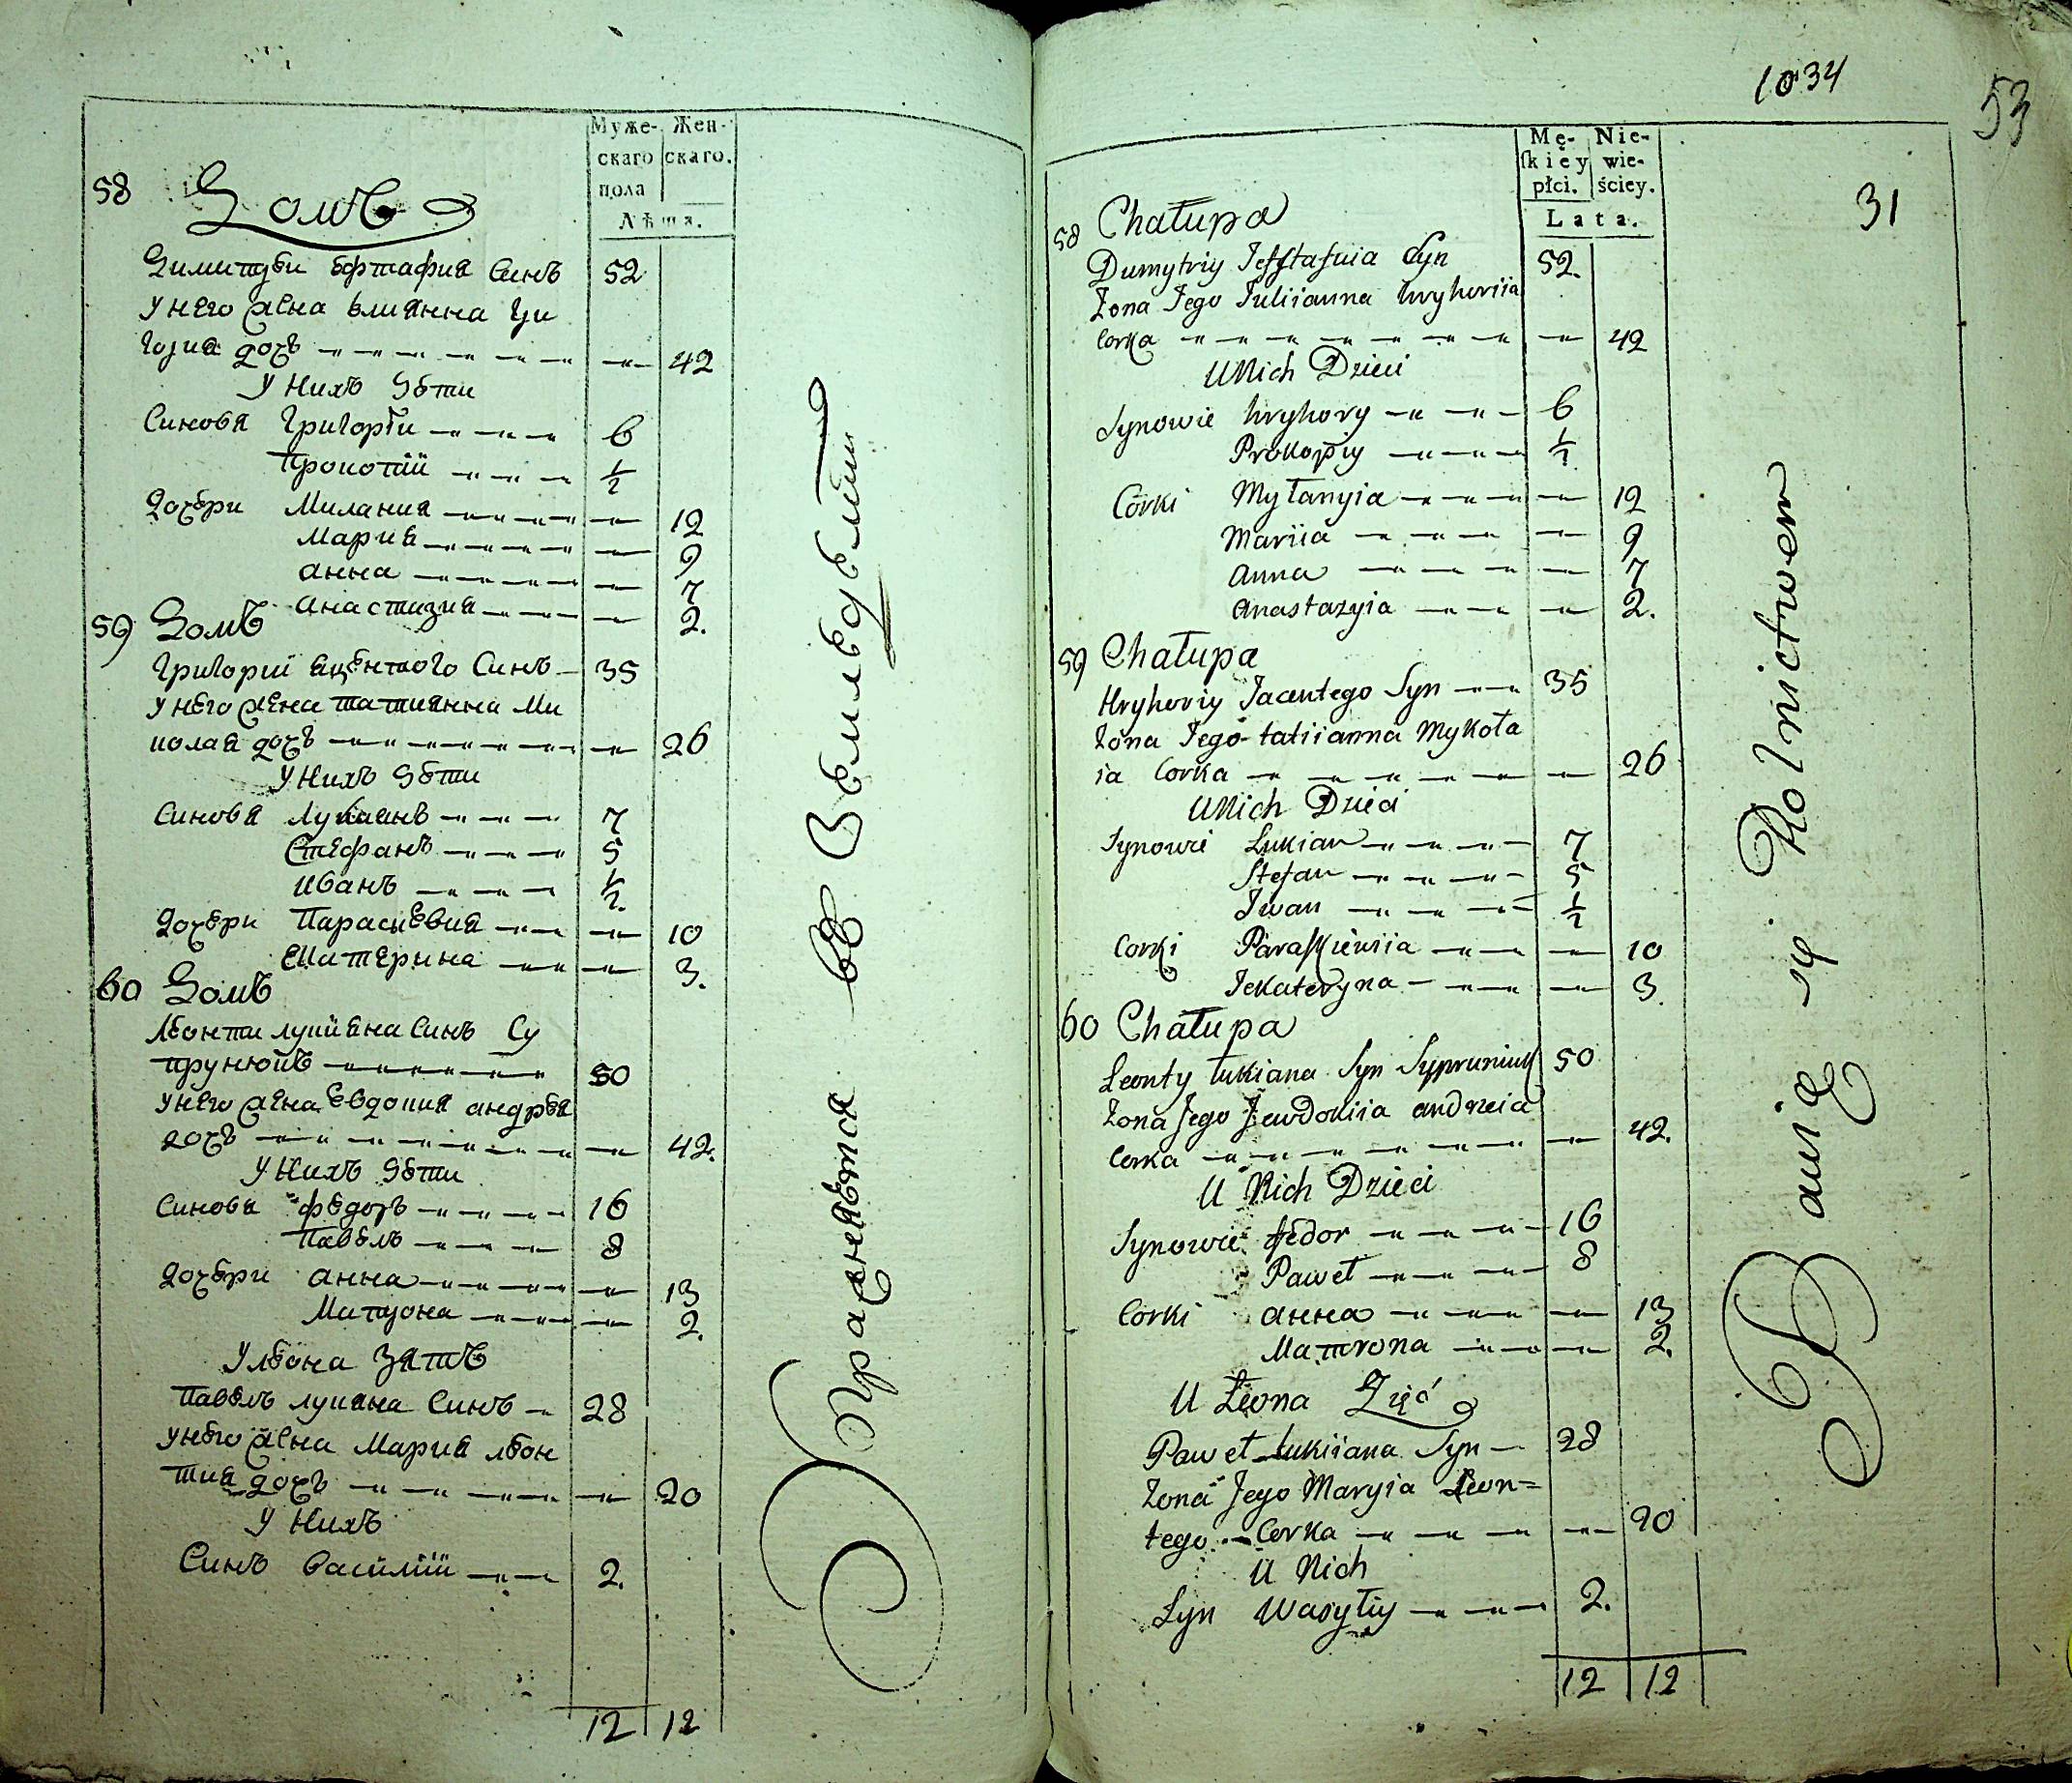 Муже- Жен-
скаго скаго.
пола
Лѣта.
58 Домъ
Димитрви Евтафия Синъ 52
У него жена Елианна Гри
гория дочь 42
У Нихъ Дѣти
Синовя Григорїи 6
Прокопій 1/2
Дочери Милания 12
Мария 9
Анна 7
Анастазия 2.
59 Домъ
Григорій Яцентого Синъ 35
У него жена Татиянна Ми
колая дочь 26
У Нихъ Дѣти
Синовя Лукаянъ 7
Стефанъ 5
Иванъ 1/2.
Дочери Параскѣвия 10
Екатерина 3.
60 Домъ
Леонти Лукияна Синъ Су
прунюкъ 50
У него жена Евдокия Андрея
дочь 42.
У Нихъ Дѣти
Синовя Федоръ 16
Павелъ 8
Дочери Анна 13
Матрона 2.
У Леона Зять
Павелъ Лукяна Синъ 28
У него жена Мария Леон
тия дочь 20
У Нихъ
Синъ Василій 2.
12 12
Упражняется въ Земледелїи
1034
53
31
Mę- Nie-
skiey wie-
płci. ściey.
Lata.
58 Chałupa
Dumytriy Jefstafuia Syn 52.
Zona Jego Juliianna hryhoriia
Corka 42
U Nich Dzieci
Synowie hryhory 6
Prokopiy 1/2
Corki Myłanyia 12
Mariia 9
Anna 7
Anastazyia 2.
59 Chałupa
Hryhoriy Jacentego Syn 35
Zona Jego tatiianna Mykoła
ia Corka 26
U Nich Dzieci
Synowie Łukian 7
Stefan 5
Iwan 1/2
Corki Paraskiewiia 10
Jekateryna 3.
60 Chałupa
Leonty Łukiana Syn Sypruniuk 50
Zona Jego Jewdokiia andreia
Corka 42.
U Nich Dzieci
Synowie fedor 16
Paweł 8
Corki анна 13
Maтrona 2.
U Leona Zięć
Paweł Łukiiana Syn 28
Zona Jego Maryia Leon=
tego Corka 20
U Nich
Syn Wasyłiy 2.
12 12
Bawią się Rolnictwem